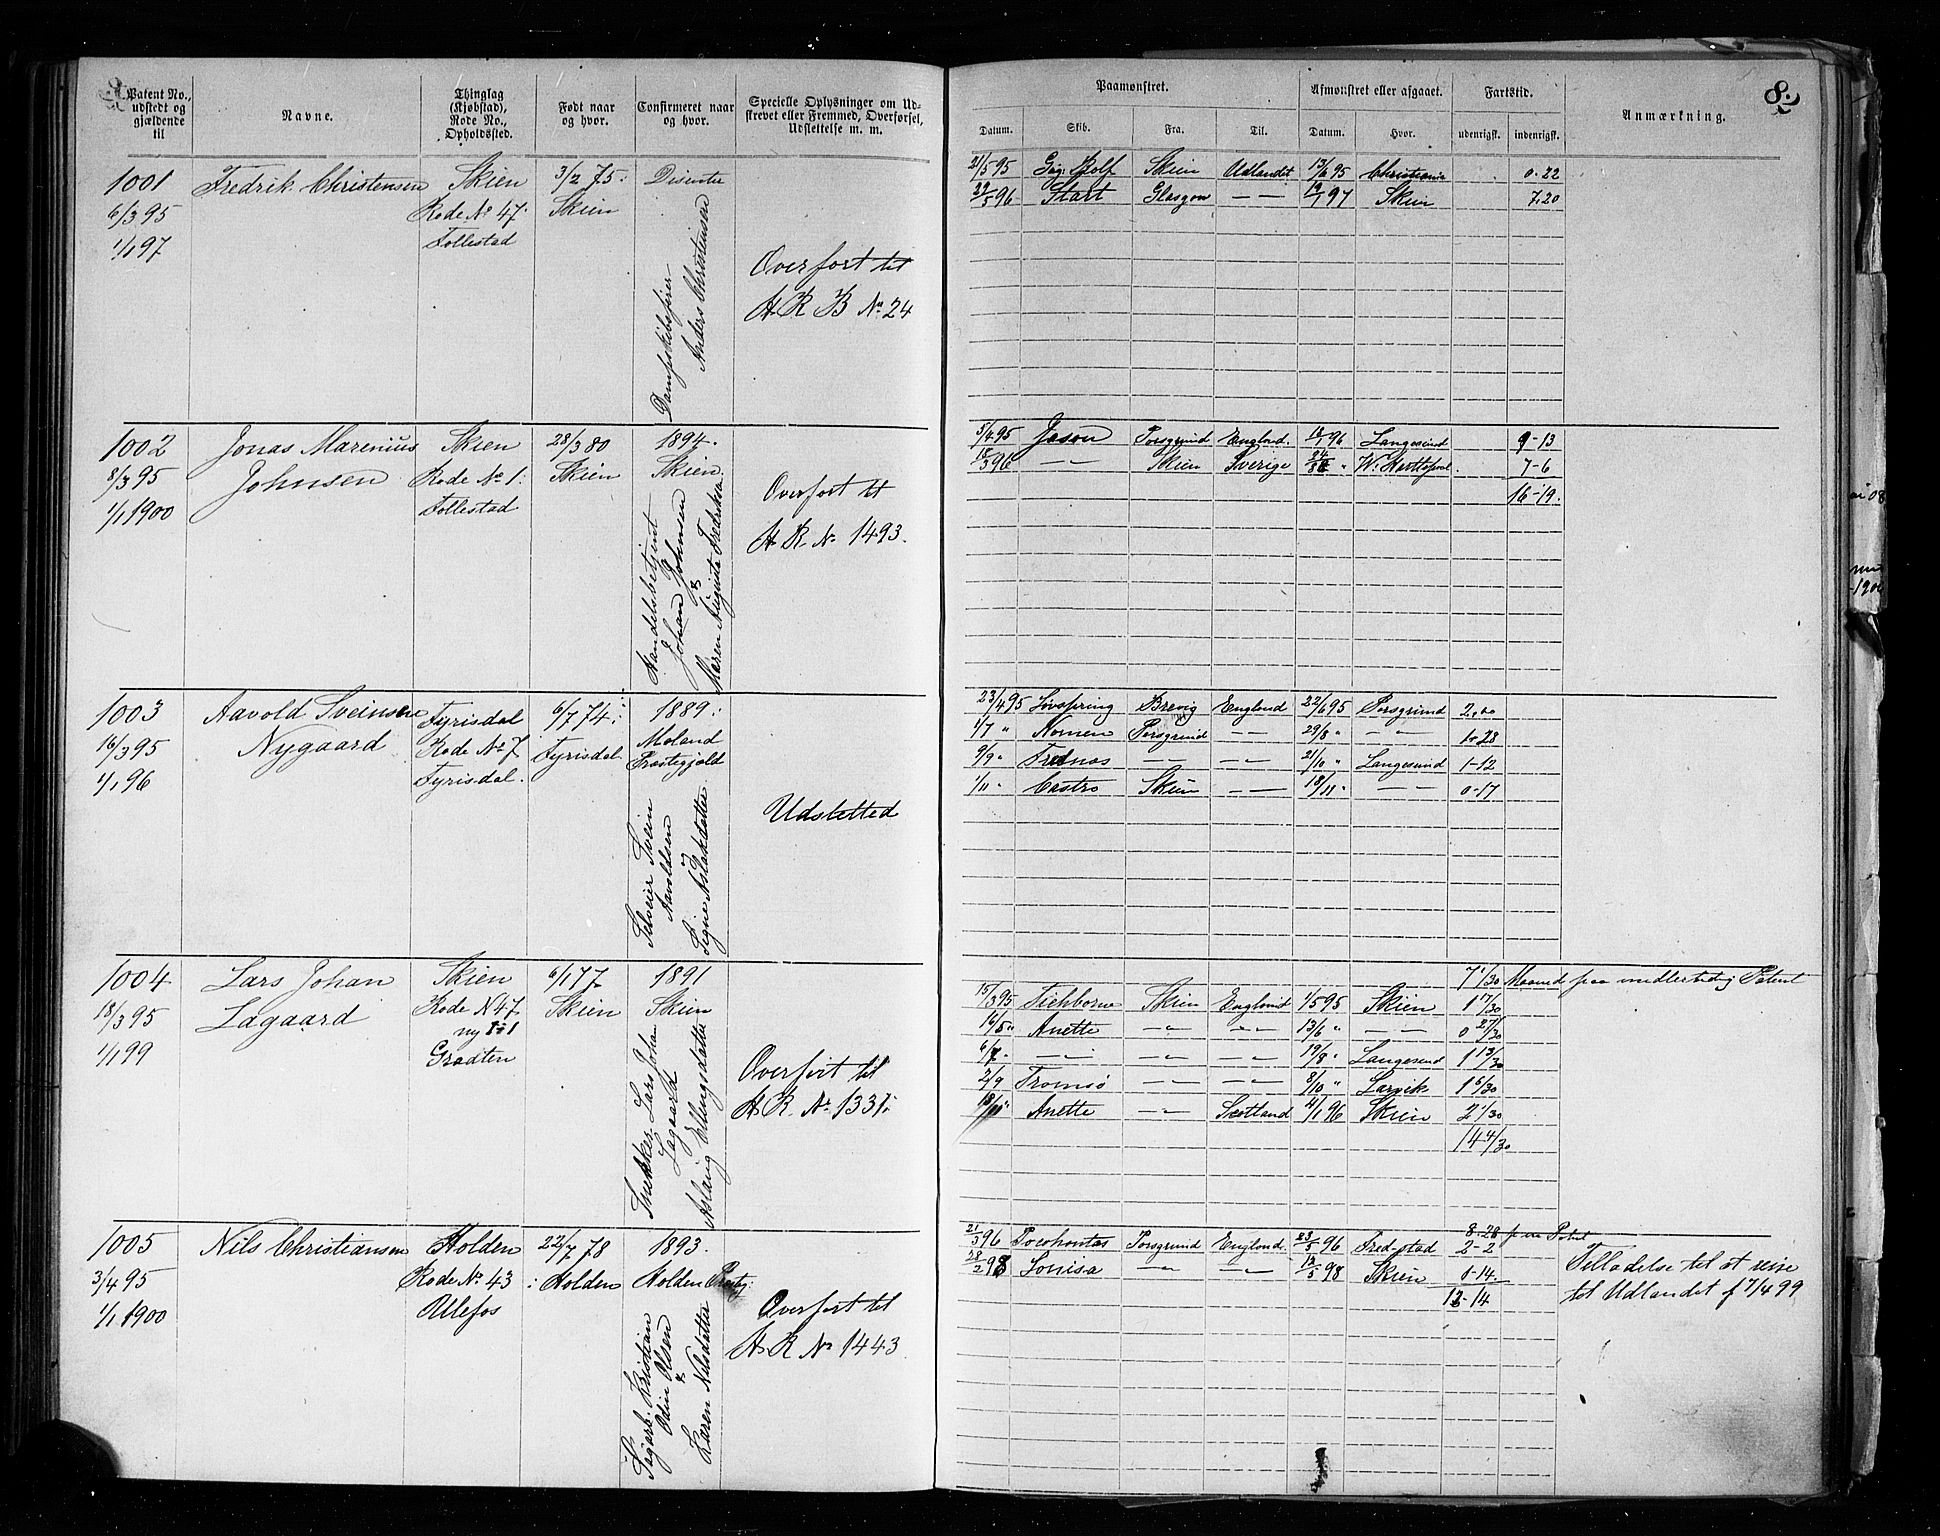 Patent No.,
udstedt og
gjældende
til
Navne.
Thinglag
(Kjøbstad),
Rode No.,
Opholdssted.
Født naar
og hvor.
Confirmeret naar
og hvor.
Specielle Oplysninger om Ud-
skrevet eller Fremmed, Overførsel,
Udslettelse m. m.
Paamønstret.
Afmønstret eller afgaaet.
Fartstid.
Anmærkning.
Datum.
Skib.
Fra.
Til.
Datum.
Hvor.
udenrigsk.
indenrigsk.
1001
6/3 95
1/1 97
Fredrik Christensen
Skien
Rode No 47
Follestad
3/2 75.
Skien
Disenter
Dampskibsfører
Anders Christensen
Overført til
H R B No 24
21/5 95 Gag. Rolf Skien Udlandet 13/6 95 Christiania 0-22
29/5 96 Start Glasgow — — 12/1 97 Skien 7-20
1002
8/3 95
1/1 1900
Jonas Marenius
Johnsen
Skien
Rode No 1.
Follestad
28/3 80
Skien
1894.
Skien
Handelsbetjent
Johan Johnsen
&
Maren Augusta Fredriksen
Overført til
H. R. No 1493.
5/4 95 Jason Porsgrund England. 12/1 96 Langesund 9-13
18/3 96 — — Skien Sverige " W. Hartlepool. 7-6
16-19.
1003
16/3 95
1/1 96
Aavold Sveinsen
Nygaard
Fyrisdal
Rode No 7
Fyrisdal.
6/7 74.
Fyrisdal.
1889.
Moland
Præstegjæld
Selveier Svein
Aavoldsen
&
Signe Aslaksdatter
Udslettet
23/4 95 Lovspring Brevig England 22/6 95 Porsgrund 2,00
1/7 " Nornen Porsgrund — — 29/8 " — " — 1-28
9/9 " Frednæs — — — — 21/10 " Langesund 1-12
1/11 " Castro Skien — — 18/11 " — — 0-17
1004
18/3 95
1/1 99
Lars Johan
Lagaard
Skien
Rode No 47
ny
Graaten
6/1 77.
Skien
1891
Skien
Snekker Lars Johan
Lagaard
&
Aslaug Ellingsdatter
Overført til
H R. No 1331.
7 1/30 Maaned paa midlertidig Patent
15/3 95 Tichborne Skien England 1/5 95 Skien 1 17/30
16/5 " Anette — " — — " — 13/6 " — — 0 27/30
6/7 " — " — — " — — " — 19/8 " Langesund 1 13/30
2/9 Tromsø — — — — 8/10 " Larvik 1 6/30
Anette — " — Skotland 4/1 96 Skien 2 1/30
14 4/30
1005
3/4 95
1/1 1900
Nils Christiansen
Holden
Rode No 43
Ulefos
22/7 78
Holden
1893.
Holden Præstg:
Sagarb. Kristian
Odin Olsen
&
Karen Nilsdatter
Overført til
H R No 1443
8-28
21/3 96 Pocohontas Porsgrund England. 23/5 96 Fred-stad 2-2
28/2 98 Lovisa — " — — " — 12/3 98 Skien 0-14.
13-14
Tilladelse til at reise
til Udlandet f 7/4 99